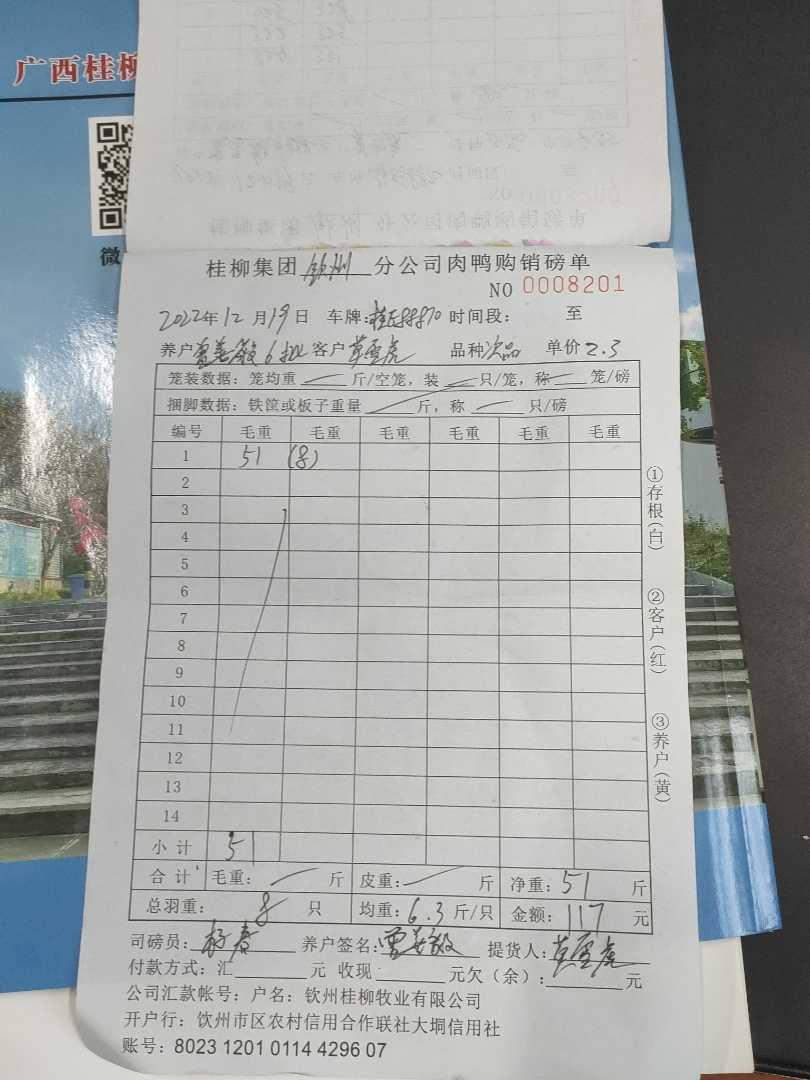 广西桂柳
微
桂柳集团 钦州 分公司肉鸭购销磅单
NO 0008201
2022年12月19日 车牌: 时间段: 至
养户 6批 客户 品种 次品 单价 2.3
笼装数据: 笼均重 斤/空笼, 装 只/笼, 称 笼/磅
捆脚数据: 铁筐或板子重量 斤, 称 只/磅
编号 毛重 毛重 毛重 毛重 毛重 毛重
1 51 (8)
2
3
4
5
6
7
8
9
10
11
12
13
14
小计 51
合计 毛重: 斤 皮重: 斤 净重: 51 斤
总羽重: 8 只 均重: 6.3 斤/只 金额: 117 元
司磅员: 杨春 养户签名: 提货人:
付款方式: 汇 元 收现 元欠(余): 元
公司汇款帐号: 户名: 钦州桂柳牧业有限公司
开户行: 钦州市区农村信用合作联社大垌信用社
账号: 8023 1201 0114 4296 07
①存根(白)
②客户(红)
③养户(黄)